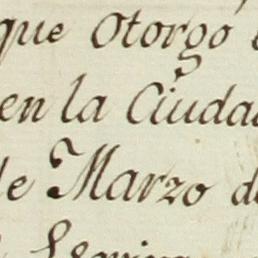 que Otorgó
en la Ciudad
de Marzo de